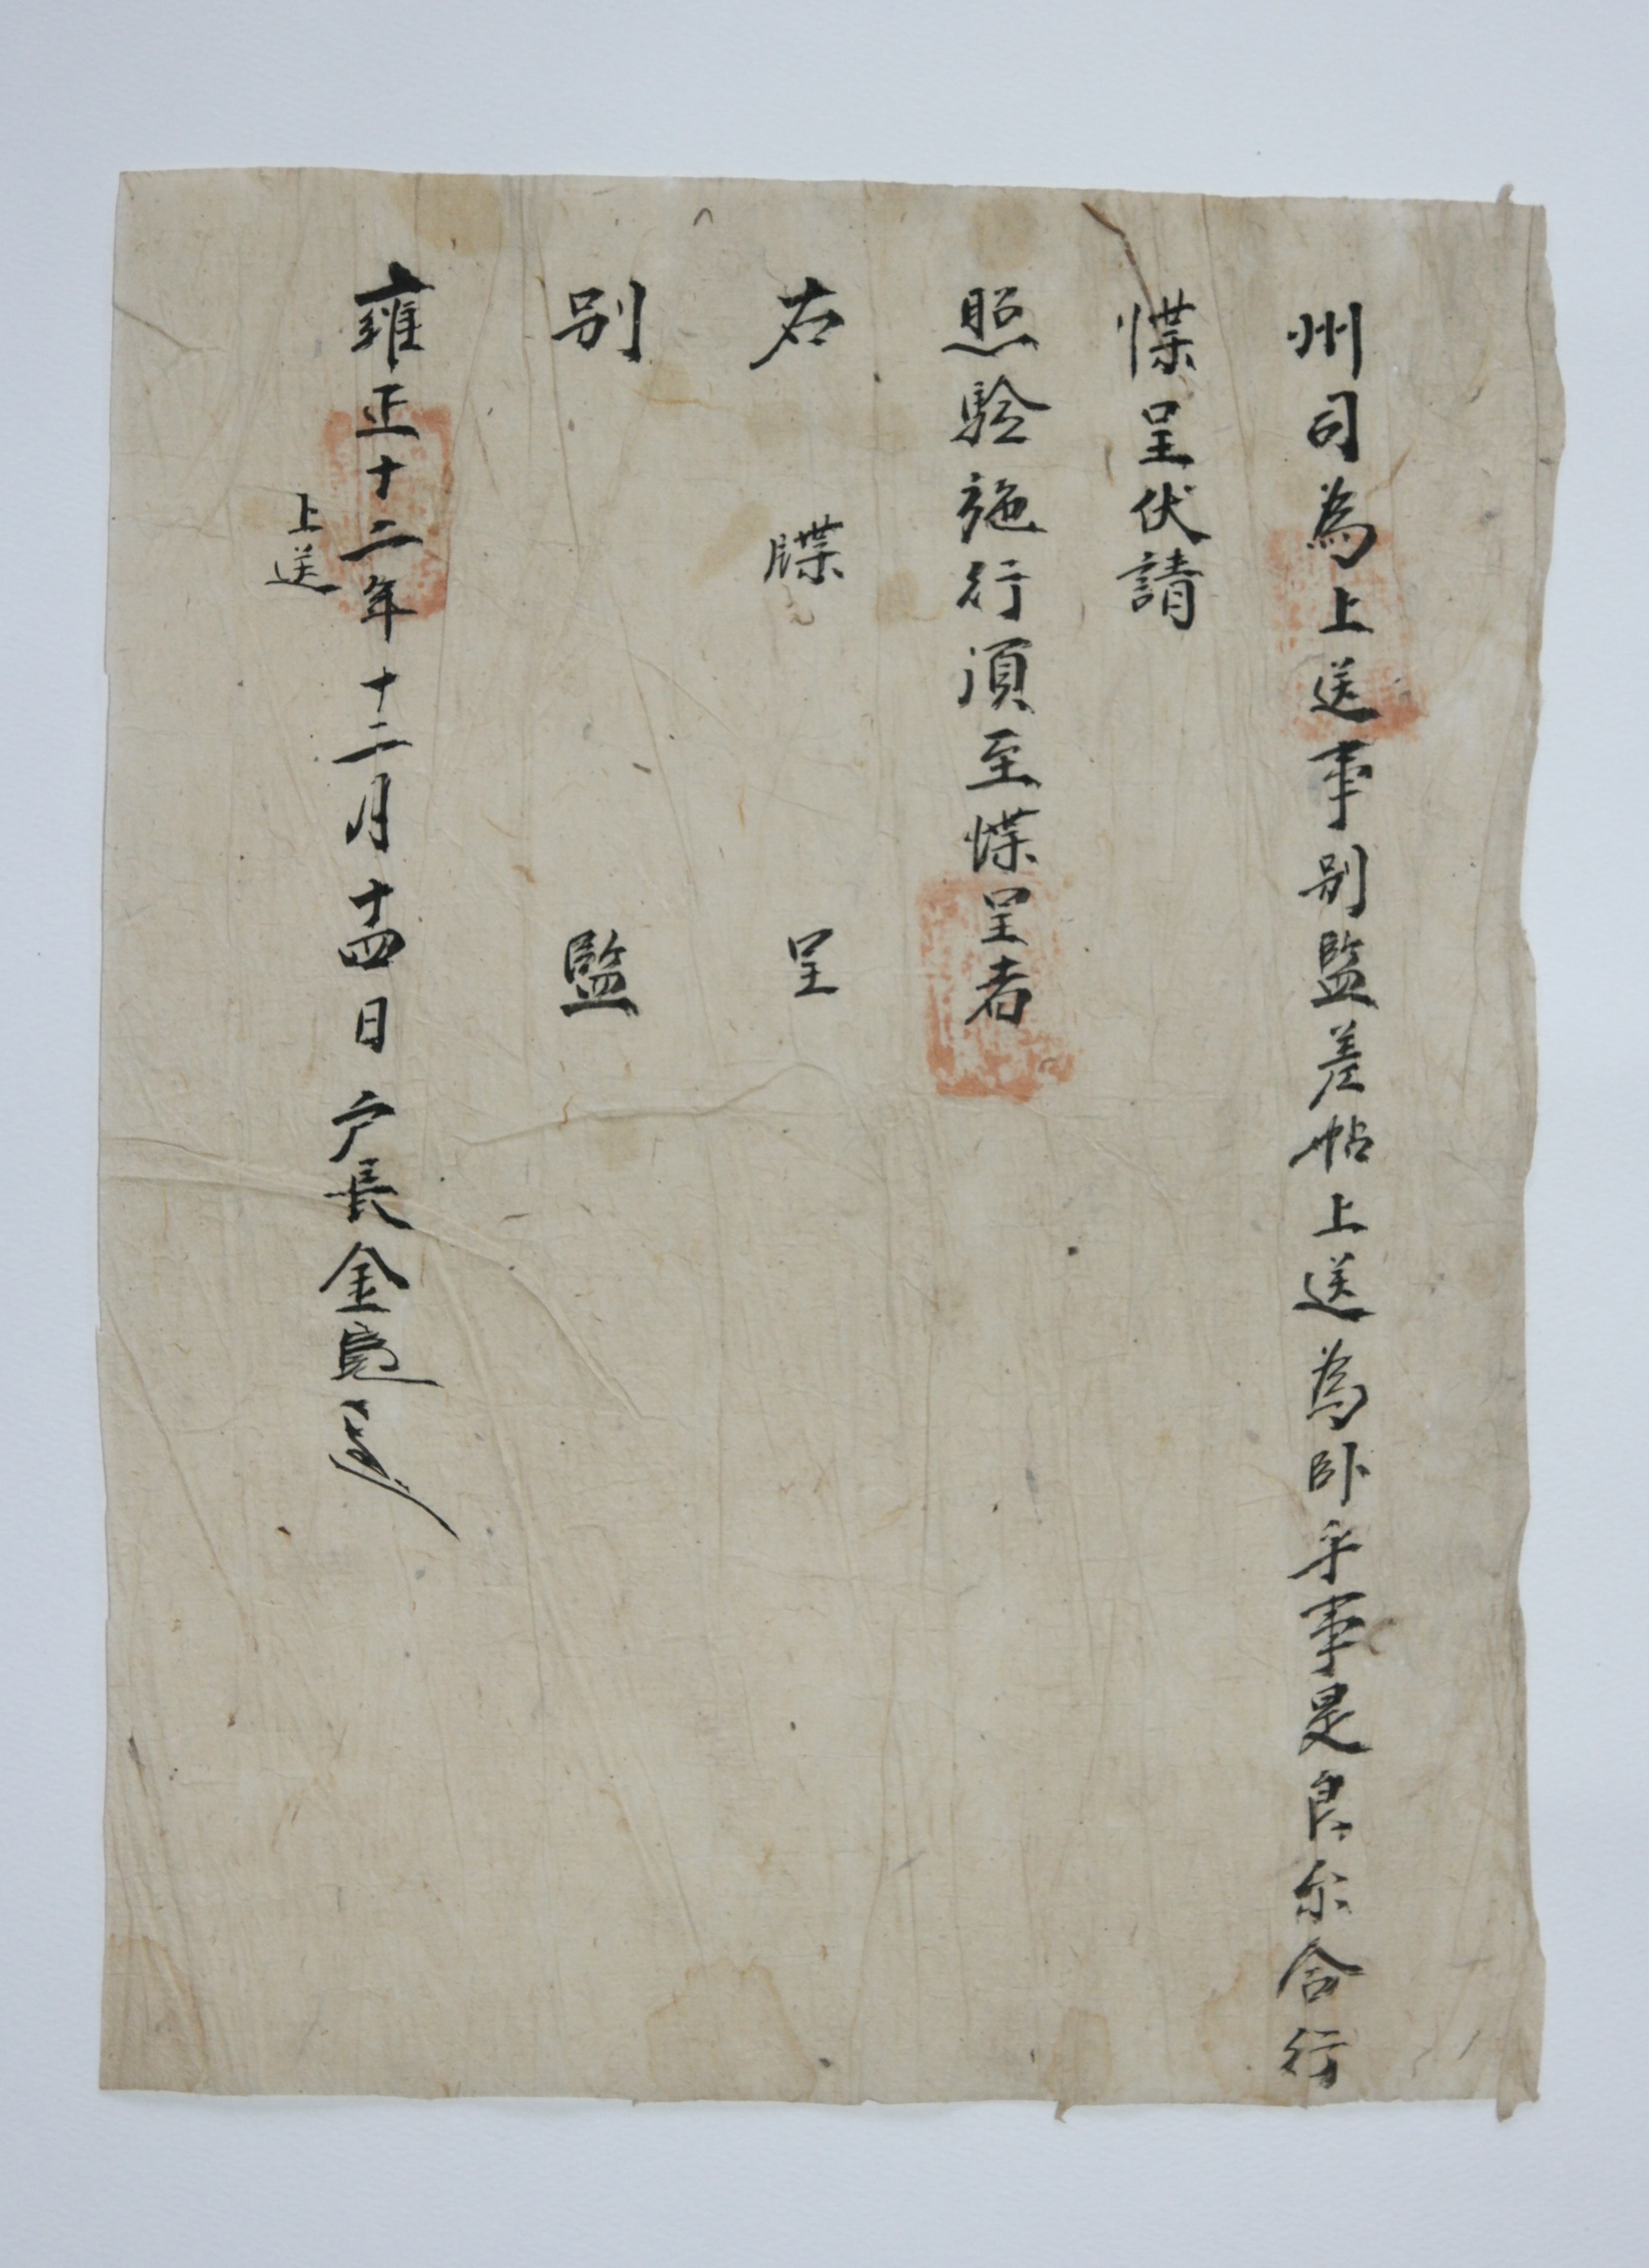 州司為上送事別監差帖上送為臥乎事是良尔合行
牒呈伏請
照驗施行須至牒呈者
右牒呈
別監
雍正十二年十二月十四日戶長金
上送